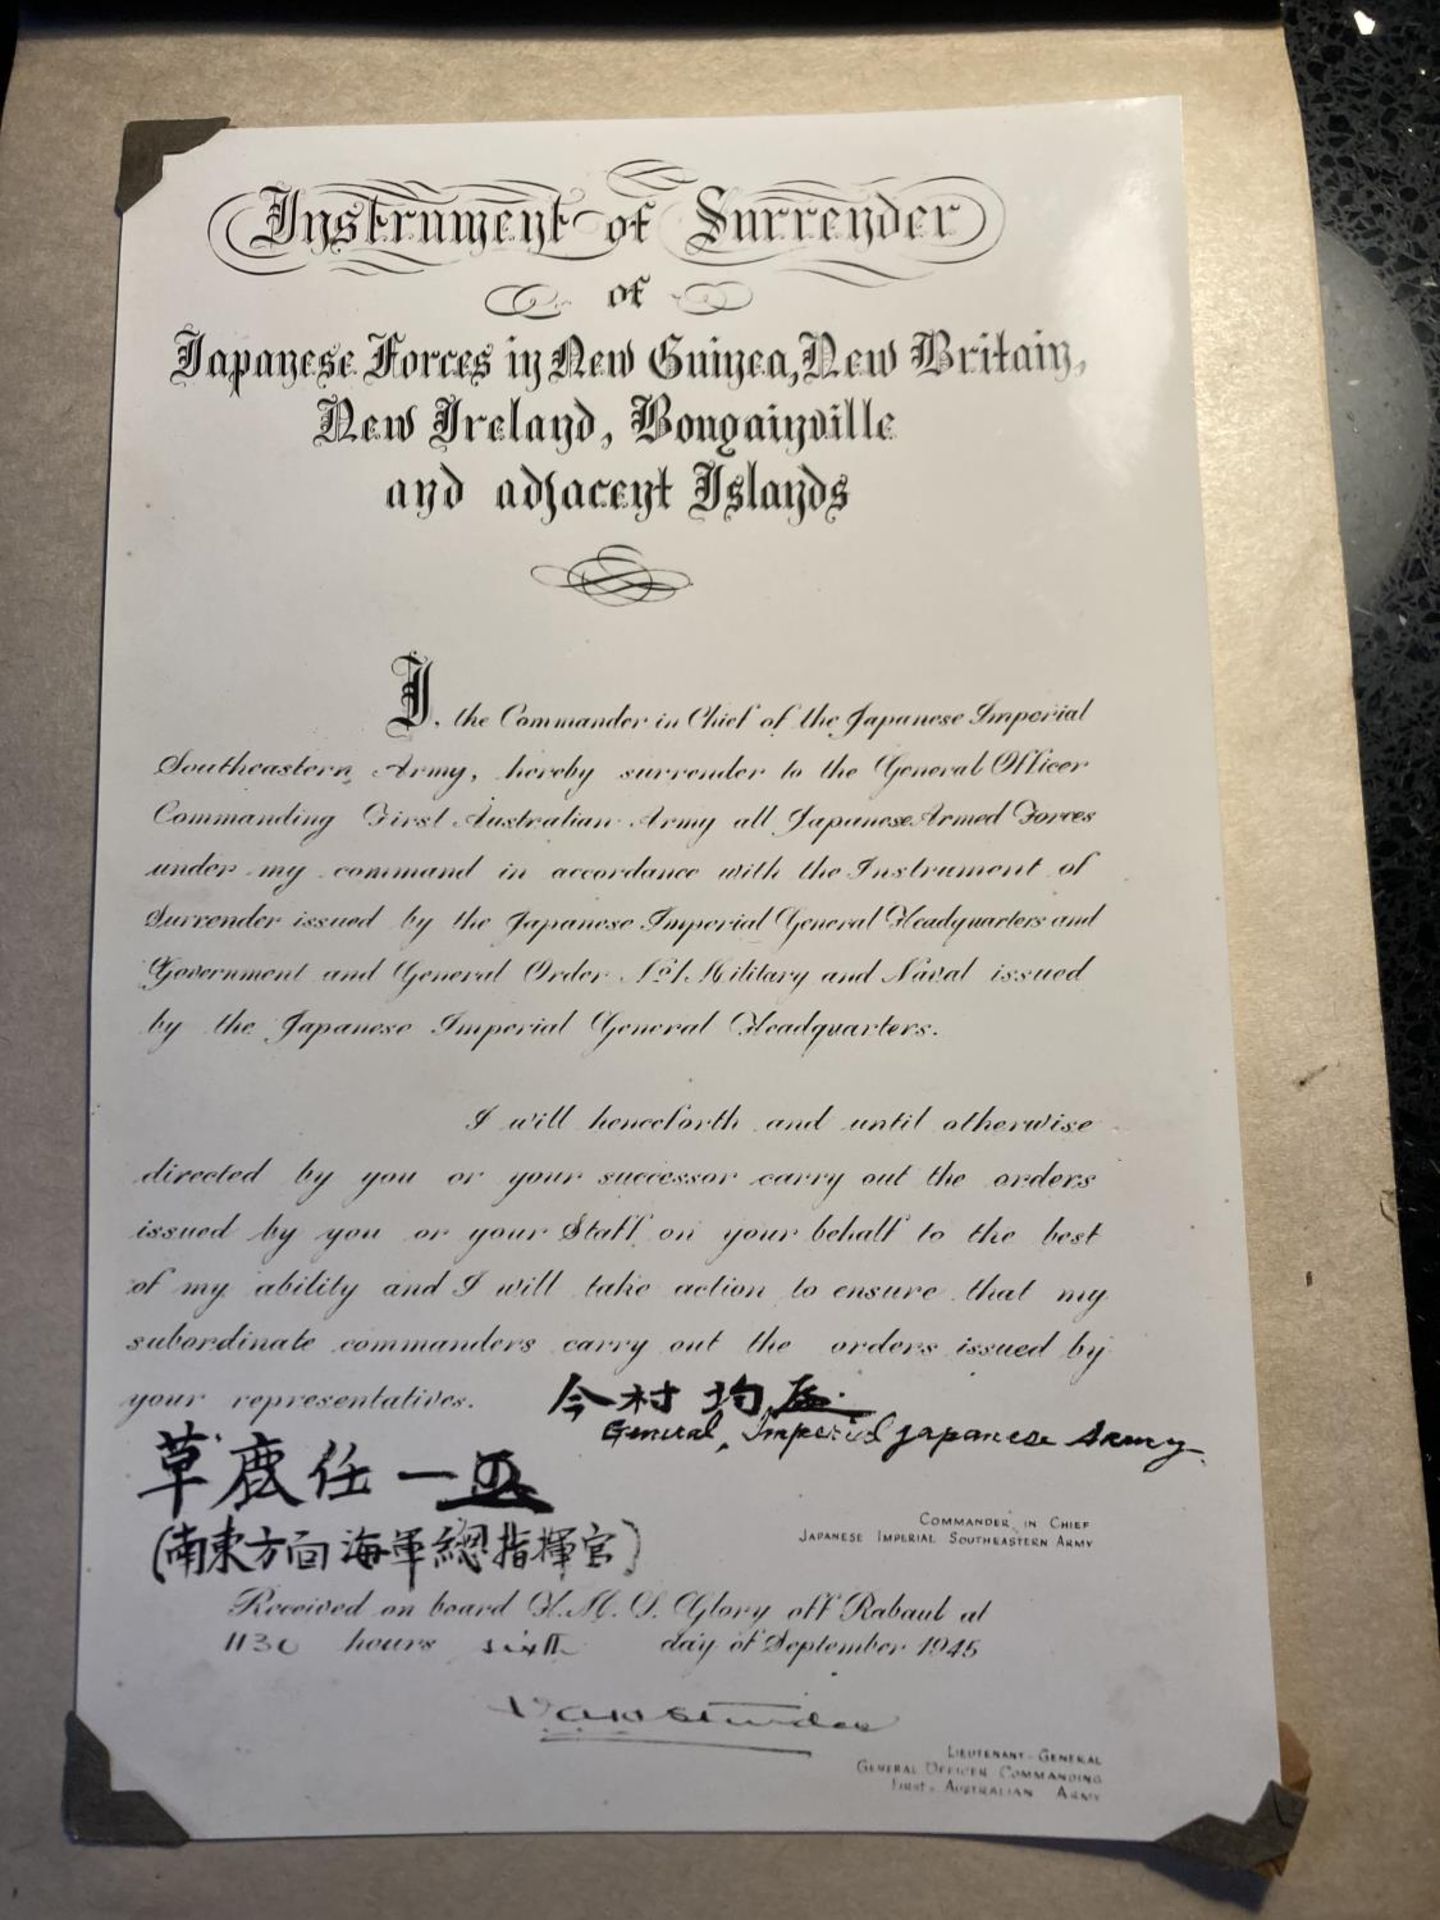 Instrument of Surrender
of
Japanese Forces in New Guinea, New Britain,
New Ireland, Bougainville
and adjacent Islands
I, the Commander in Chief of the Japanese Imperial
Southeastern Army, hereby surrender to the General Officer
Commanding First Australian Army all Japanese Armed Forces
under my command in accordance with the Instrument of
Surrender issued by the Japanese Imperial General Headquarters and
Government and General Order No. 1 Military and Naval issued
by the Japanese Imperial General Headquarters.
I will henceforth and until otherwise
directed by you or your successor carry out the orders
issued by you or your Staff on your behalf to the best
of my ability and I will take action to ensure that my
subordinate commanders carry out the orders issued by
your representatives.
今村 均
General, Imperial Japanese Army
草鹿任一
(南東方面海軍總指揮官)
COMMANDER IN CHIEF
JAPANESE IMPERIAL SOUTHEASTERN ARMY
Received on board H.M.S. Glory off Rabaul at
1130 hours sixth day of September 1945
VAH Sturdee
LIEUTENANT-GENERAL
GENERAL OFFICER COMMANDING
FIRST AUSTRALIAN ARMY